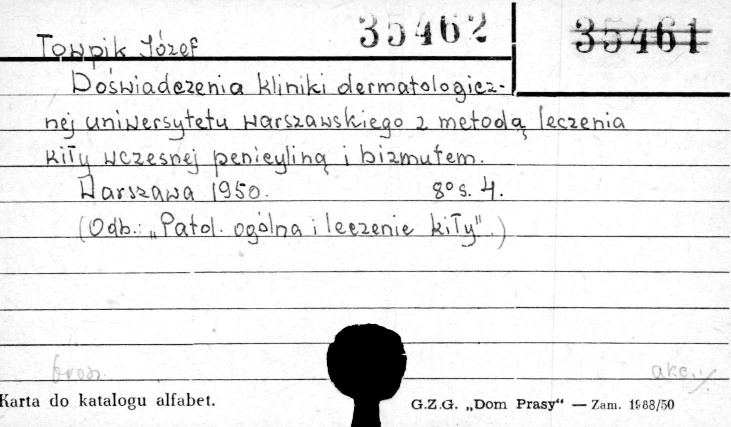 35462 35461
Towpik Józef
Doświadczenia kliniki dermatologicz-
nej uniwersytetu warszawskiego z metodą leczenia
kiły wczesnej penicyliną i bizmutem.
Warszawa 1950. 8° s. 4.
(Odb.: „Patol. ogólna i leczenie kiły".)
brosz. akc. ./.
Karta do katalogu alfabet. G.Z.G. „Dom Prasy" — Zam. 1988/50